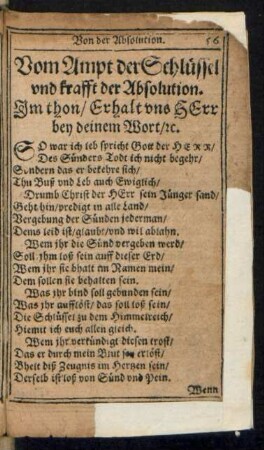 Von der Absolution. 56
Vom Ampt der Schlüssel
vnd krafft der Absolution.
Im thon / Erhalt vns HErr
bey deinem Wort / ꝛc.
SO war ich leb spricht Gott der HERR /
Des Sünders Todt ich nicht begehr /
Sondern das er bekehre sich /
Thu Buß vnd Leb auch Ewiglich /
Drumb Christ der HErr sein Jünger sand /
Geht hin / predigt in alle Land /
Vergebung der Sünden jederman /
Dems leid ist / glaubt / vnd wil ablahn.
Wem jhr die Sünd vergeben werd /
Soll jhm loß sein auff dieser Erd /
Wem jhr sie bhalt im Namen mein /
Dem sollen sie behalten sein.
Was jhr bind soll gebunden sein /
Was jhr aufflöst / das soll loß sein /
Die Schlüssel zu dem Himmelreich /
Hiemit ich euch allen gleich.
Wem jhr verkündigt diesen trost /
Das er durch mein Blut sey erlöst /
Bheit diß Zeugnis im Hertzen sein /
Derselb ist loß von Sünd vnd Pein.
Wenn